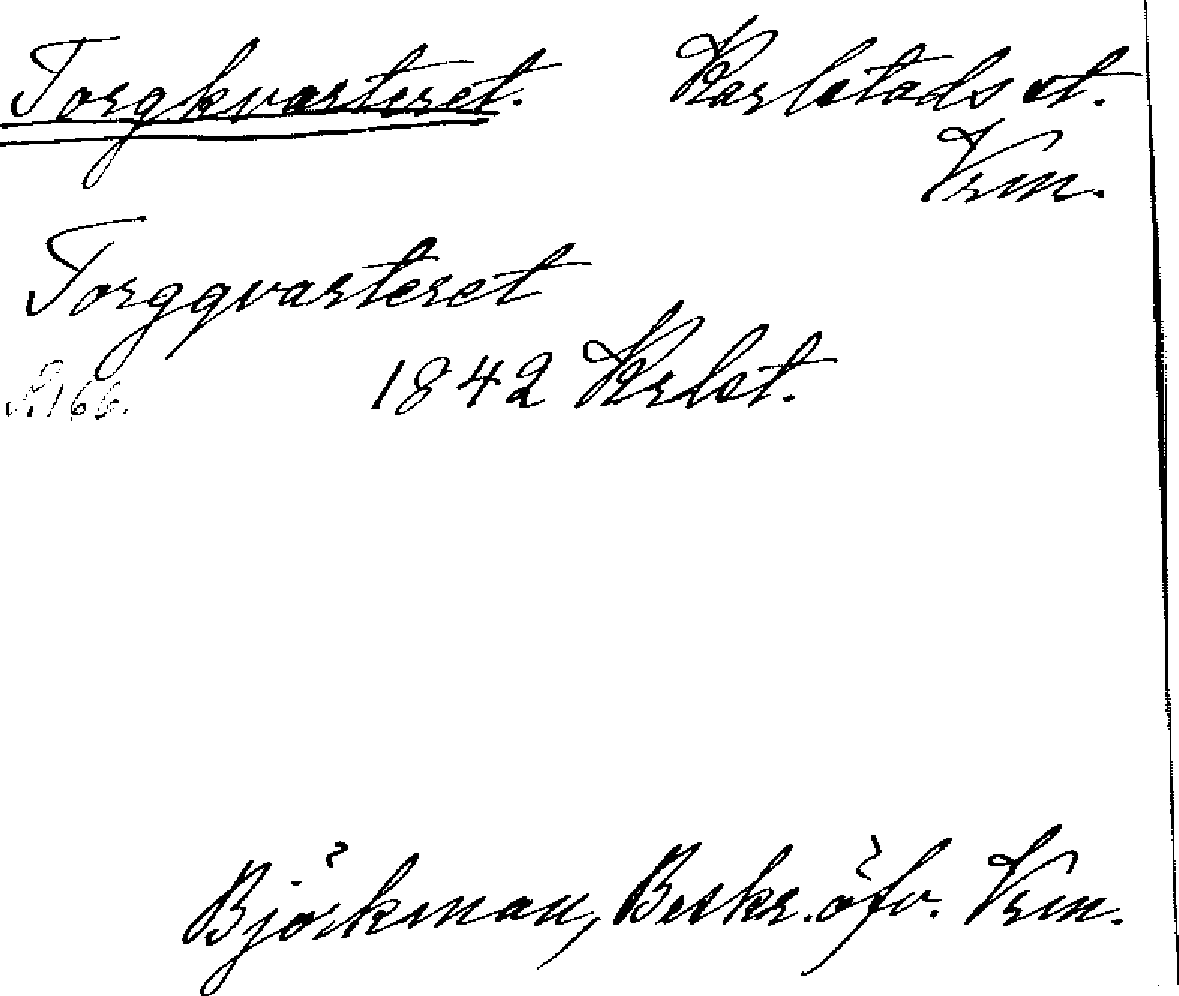 Torgkvarteret. Karlstads st.
Vrm.
Torgqvarteret
S. 166. 1842 Krlst.
Björkman, Beskr. öfv. Vrm.